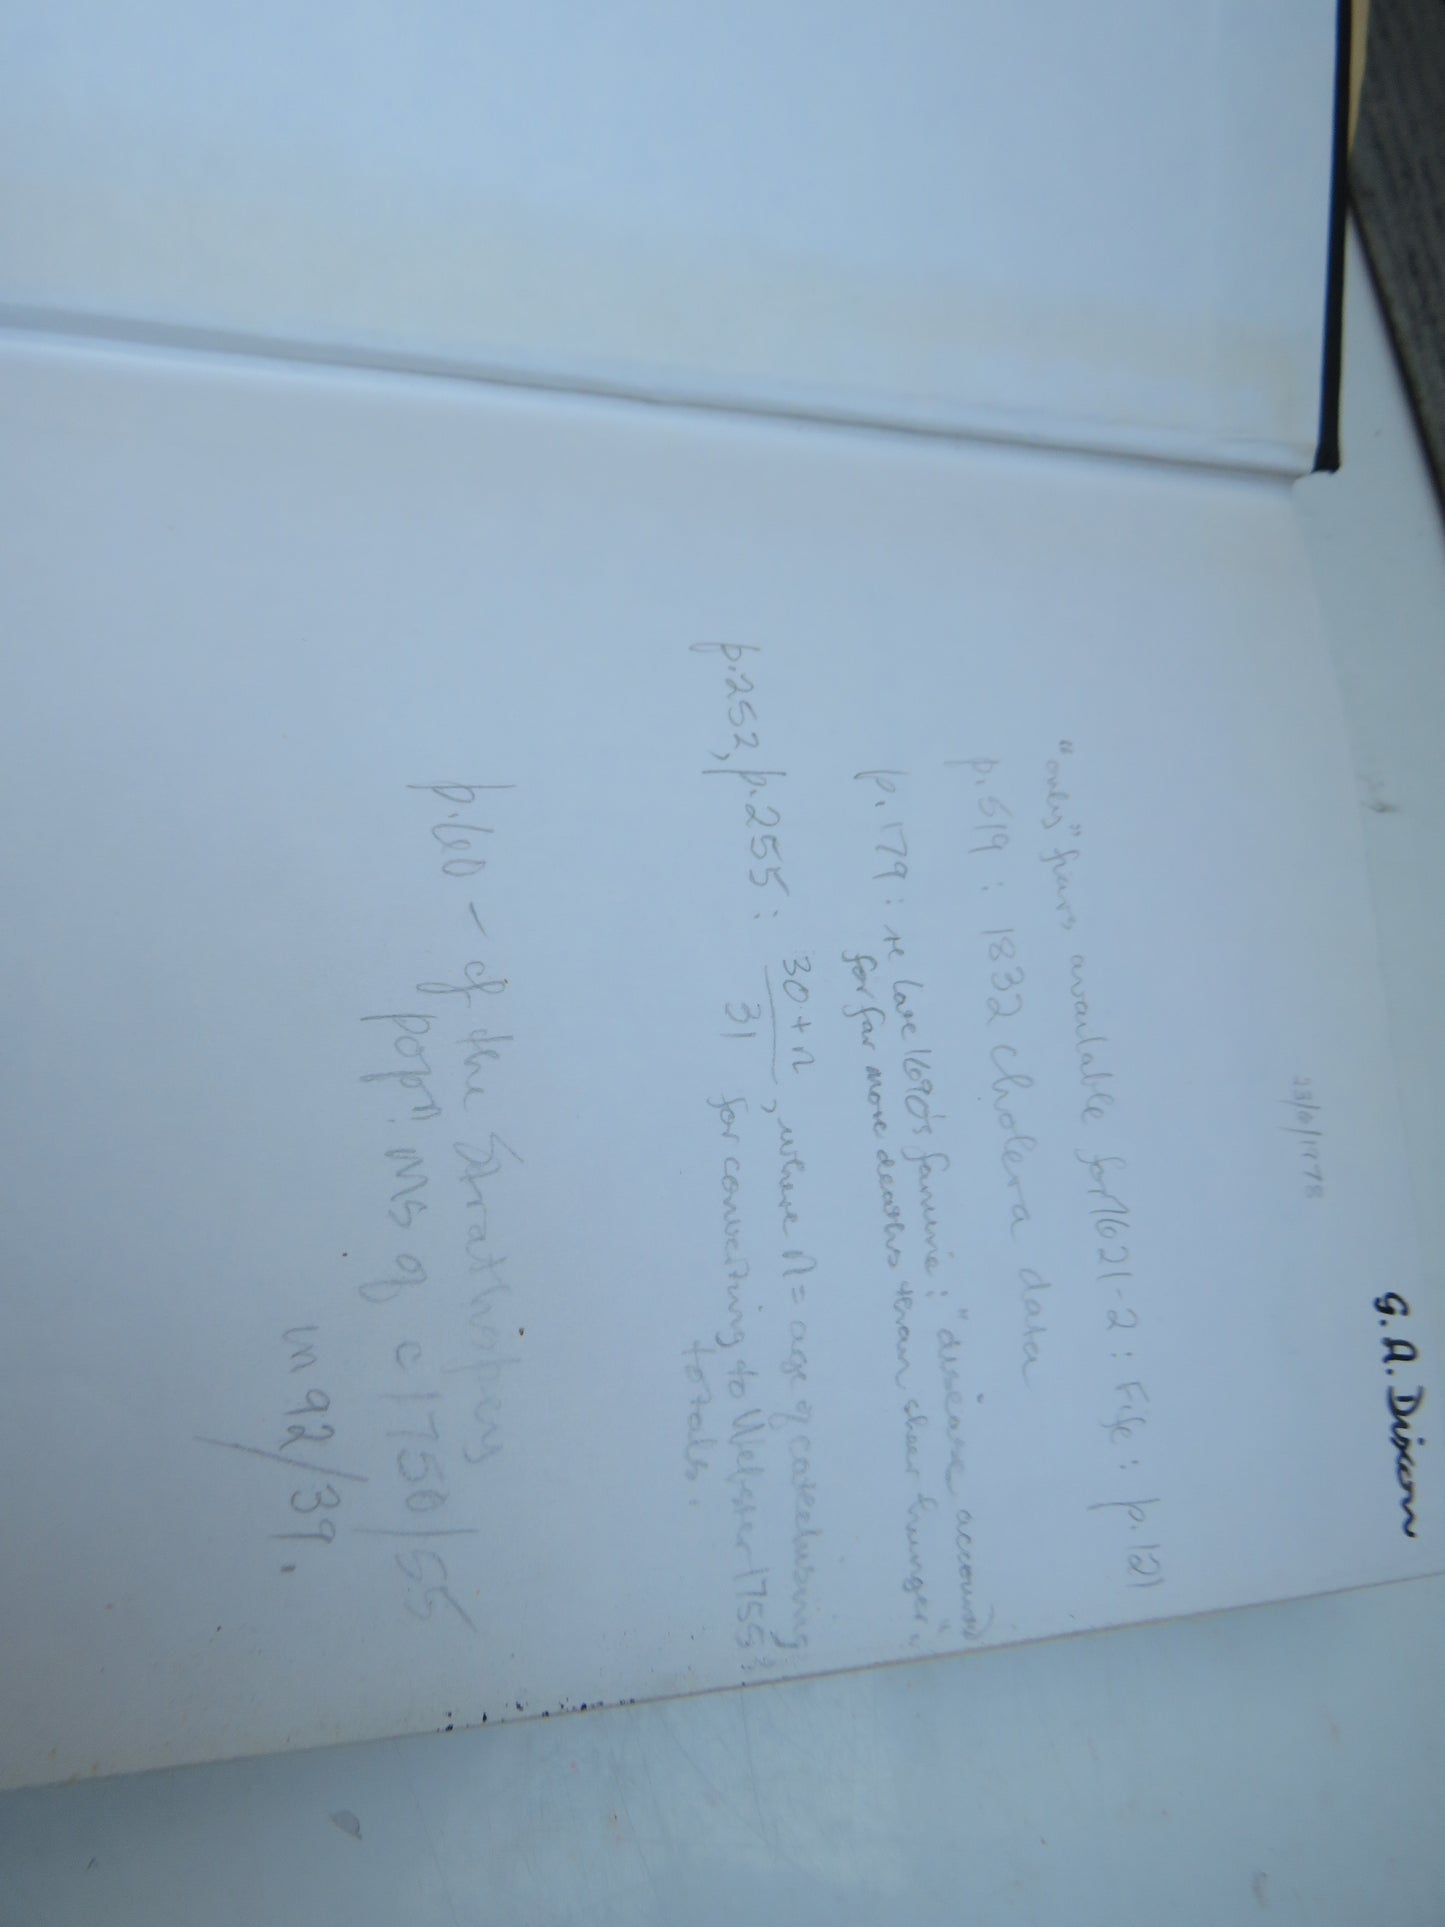 G. A. Dixon
23/6/1978
"only" fiars available for 1621-2 : Fife : p. 121
p. 519 : 1832 cholera data
p. 179 : re late 1690's famine : "disease accounted
for far more deaths than sheer hunger".
p. 252, p. 255 : 30 + n , where n = age of catechising
31 for converting to Webster 1755
totals.
p. 60 - cf the Strathspey
popn. MS of c 1750/55
in 92/39.